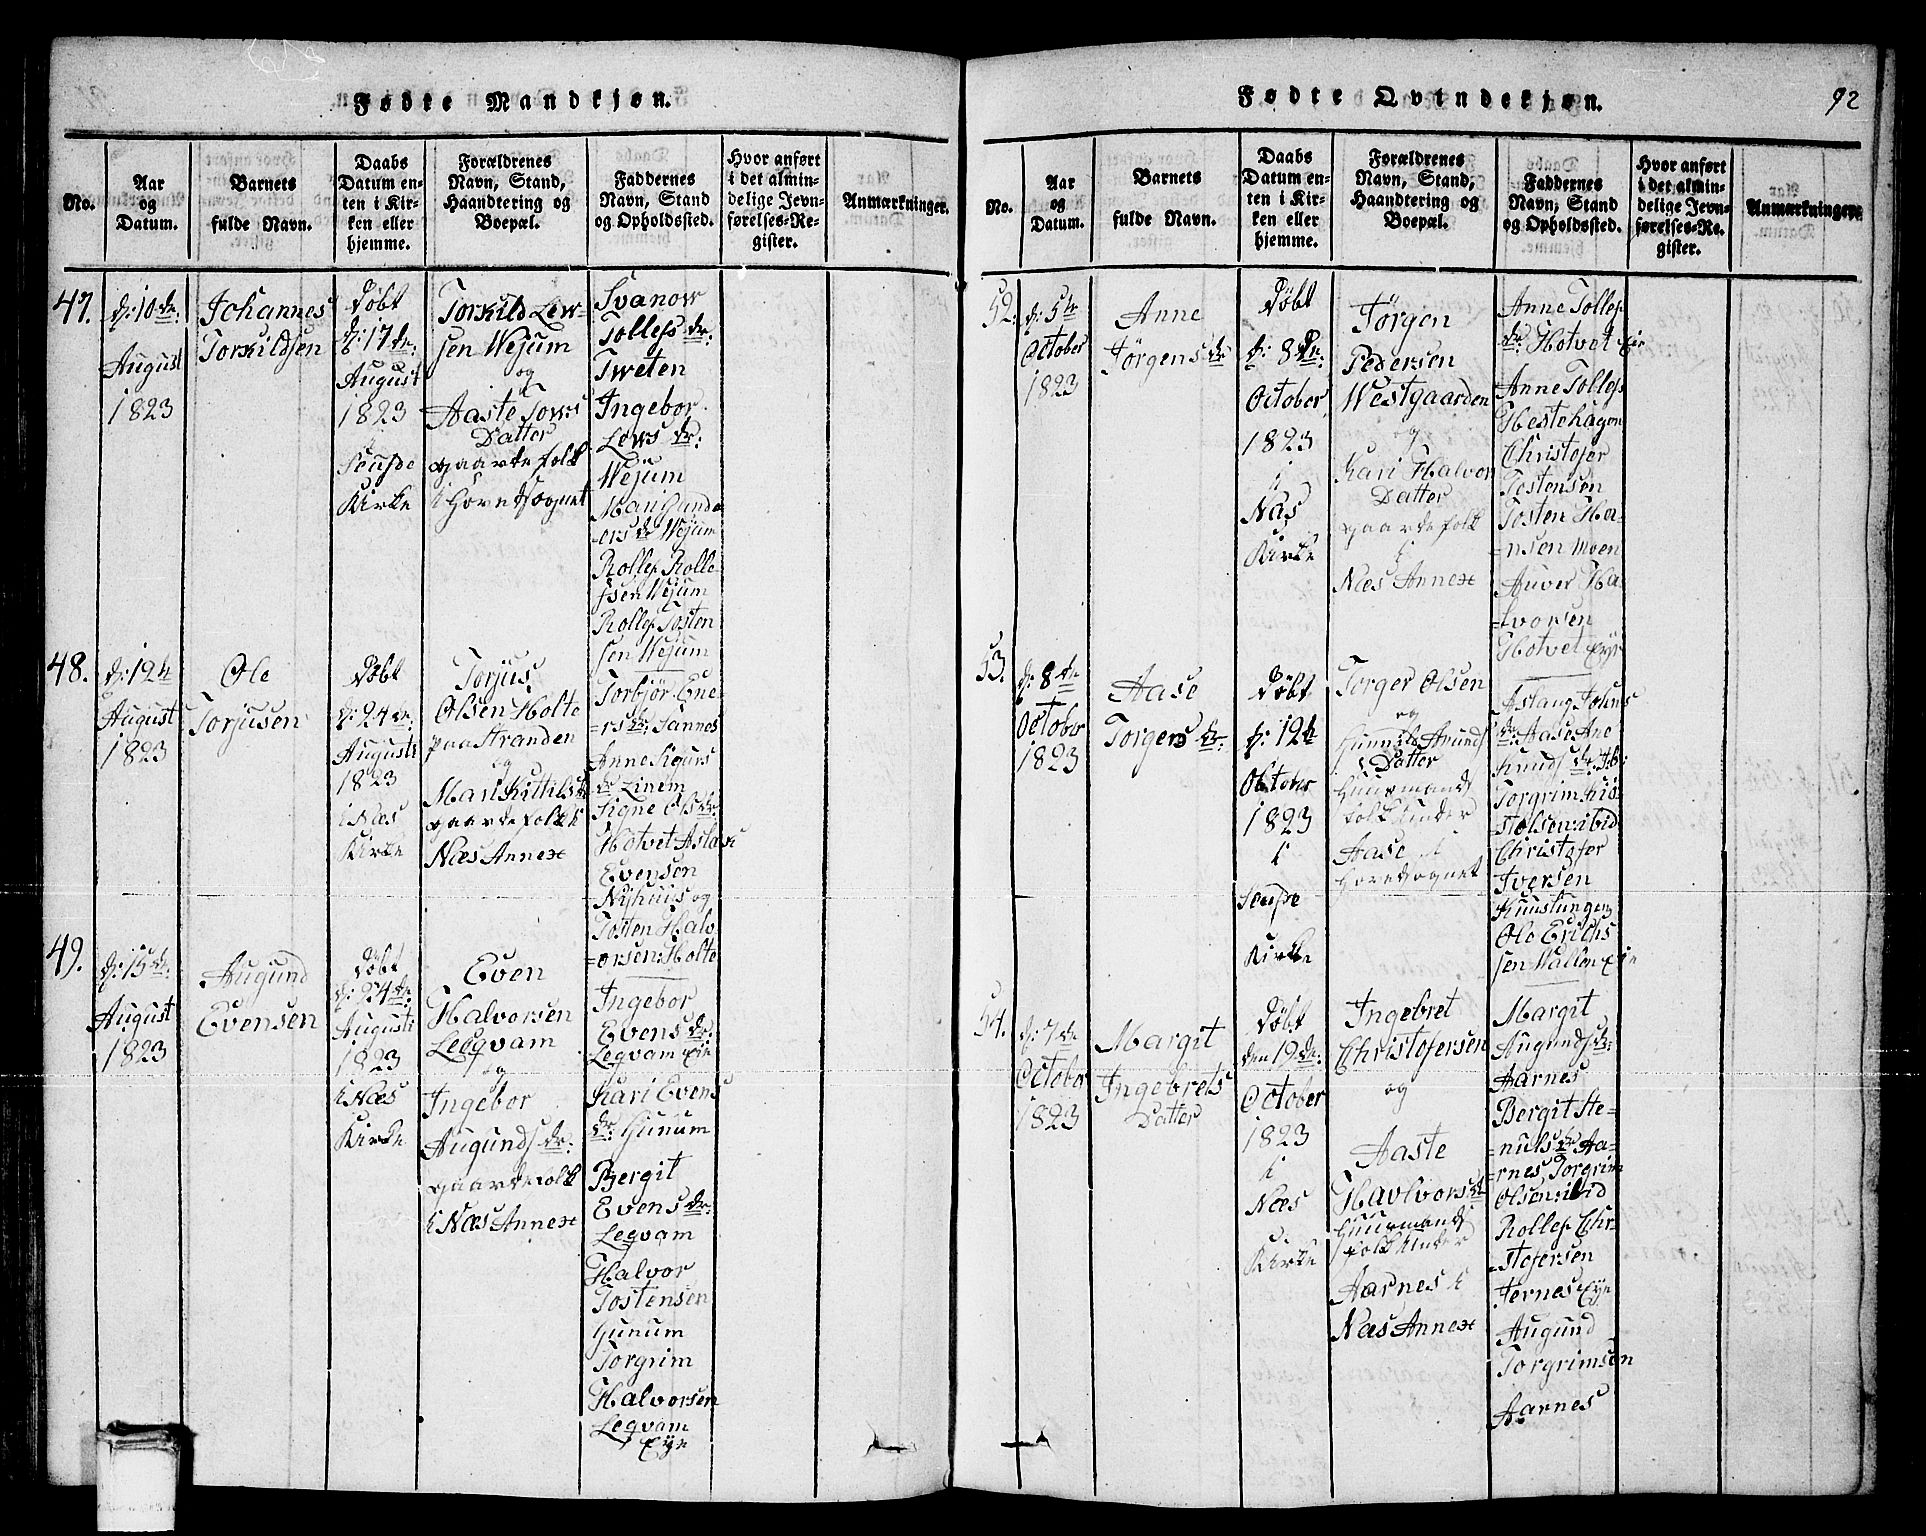 Fødte Mandkjøn.
No.
Aar
og
Datum.
Barnets
fulde Navn.
Daabs
Datum en-
ten i Kir-
ken eller
hjemme.
Forældrenes
Navn, Stand,
Haandtering og
Boepæl.
Faddernes
Navn, Stand
og Opholdssted.
Hvor anført
i det almin-
delige Jevn-
førelses-Re-
gister.
Anmærkninger.
47.
d: 10 de:
August
1823
Johannes
Torkildsen
Døbt
d: 17 de:
August
1823
i
Seufde
Kirke
Torkild Lew-
sen Wejum
og
Aaste Tows
Datter
gaardefolk
i Hovedsognet
Svanow
Tollefs dr:
Tweten
Ingebor
Lews dr:
Wejum
Mari Gund
ers dr Wejum
Rollef Rolle-
fsen Wejum
Rollef Tosten
sen Wejum
48.
d: 12 te
August
1823
Ole
Torjusen
Døbt
d: 24 de:
Augusti
1823
i Næs
Kirke
Torjus
Olsen Holte
paa Stranden
og
Mari Kittils dr
gaardefolk i
Næs Annex
Torbjør Ene-
rs dr: Sannes
Anne Sigurs
dr Linem
Signe Ols dr:
Hotvet Aslak
Evensen
Nyhuus og
Tosten Halv
=orsen: Holte
49.
d: 15 de:
August
1823
Augund
Evensen
Døbt
d: 24 de
Augusti
1823
i Næs
Kirke
Even
Halvorsen
Leqvam
og
Ingebor
Augunds dr:
gaardefolk
i Næs Annex
Ingebor
Evens dr:
Leqvam Eie
Kari Evens
dr: Gunum
Bergit
Evens dr:
Leqvam
Halvor
Tostensen
Gunum
Torgrim
Halvorsen
Leqvam
Eye
Fødte Qvindekjøn.
92
No.
Aar
og
Datum.
Barnets
fulde Navn.
Daabs
Datum en-
ten i Kir-
ken eller
hjemme.
Forældrenes
Navn, Stand,
Haandtering og
Boepæl.
Faddernes
Navn, Stand
og Opholdssted.
Hvor anført
i det almin-
delige Jevn-
førelses-Re-
gister.
Anmærkninger.
52.
d: 5 te
October
1823
Anne
Jørgens dr
Døbt
d: 8 de
October
1823
i
Næs
Kirke
Jørgen
Pedersen
Westgaarden
og
Kari Halvor
Datter
gaardefolk
i
Næs Annex
Anne Tollef
dr: Hotvet Eie
Anne Tollefs
Hestehagen
Christofer
Tostensen
Tosten Ha-
=nsen Moen
Auver Ha-
=lvorsen
Hotvet Eye
53.
d: 8 de
October
1823
Aase
Torgers dr.
Døbt
d: 12 te
Oktober
1823
i
Seufde
Kirke
Torger Olsen
og
Gunnild Amunds
Datter
Huusmands
folk under
Aase i
Hovedsognet
Aslaug Johns
dr: Aase Ane
Knuds dr: ib:
Torgrim Kiø-
stolsen: ibid
Christofer
Iversen
Kuustungen
Ole Erichs
sen Wallen Eie
54.
d: 7 de
October
1823
Margit
Ingebrets
Datter
Døbt
den 19 de:
October
1823
i
Næs
Kirke
Ingebret
Christofersen
og
Aaste
Havlvors dr
Huusmands
folk under
Aarnes i
Næs Annex
Margit
Augunds dr:
Aarnes
Bergit Ste-
=nuls dr Aa-
=rnes Torgrim
Olsen: ibid
Rollef Chr-
=istofersen
Jernes Eye
Augund
Torgrimsen
Aarnes